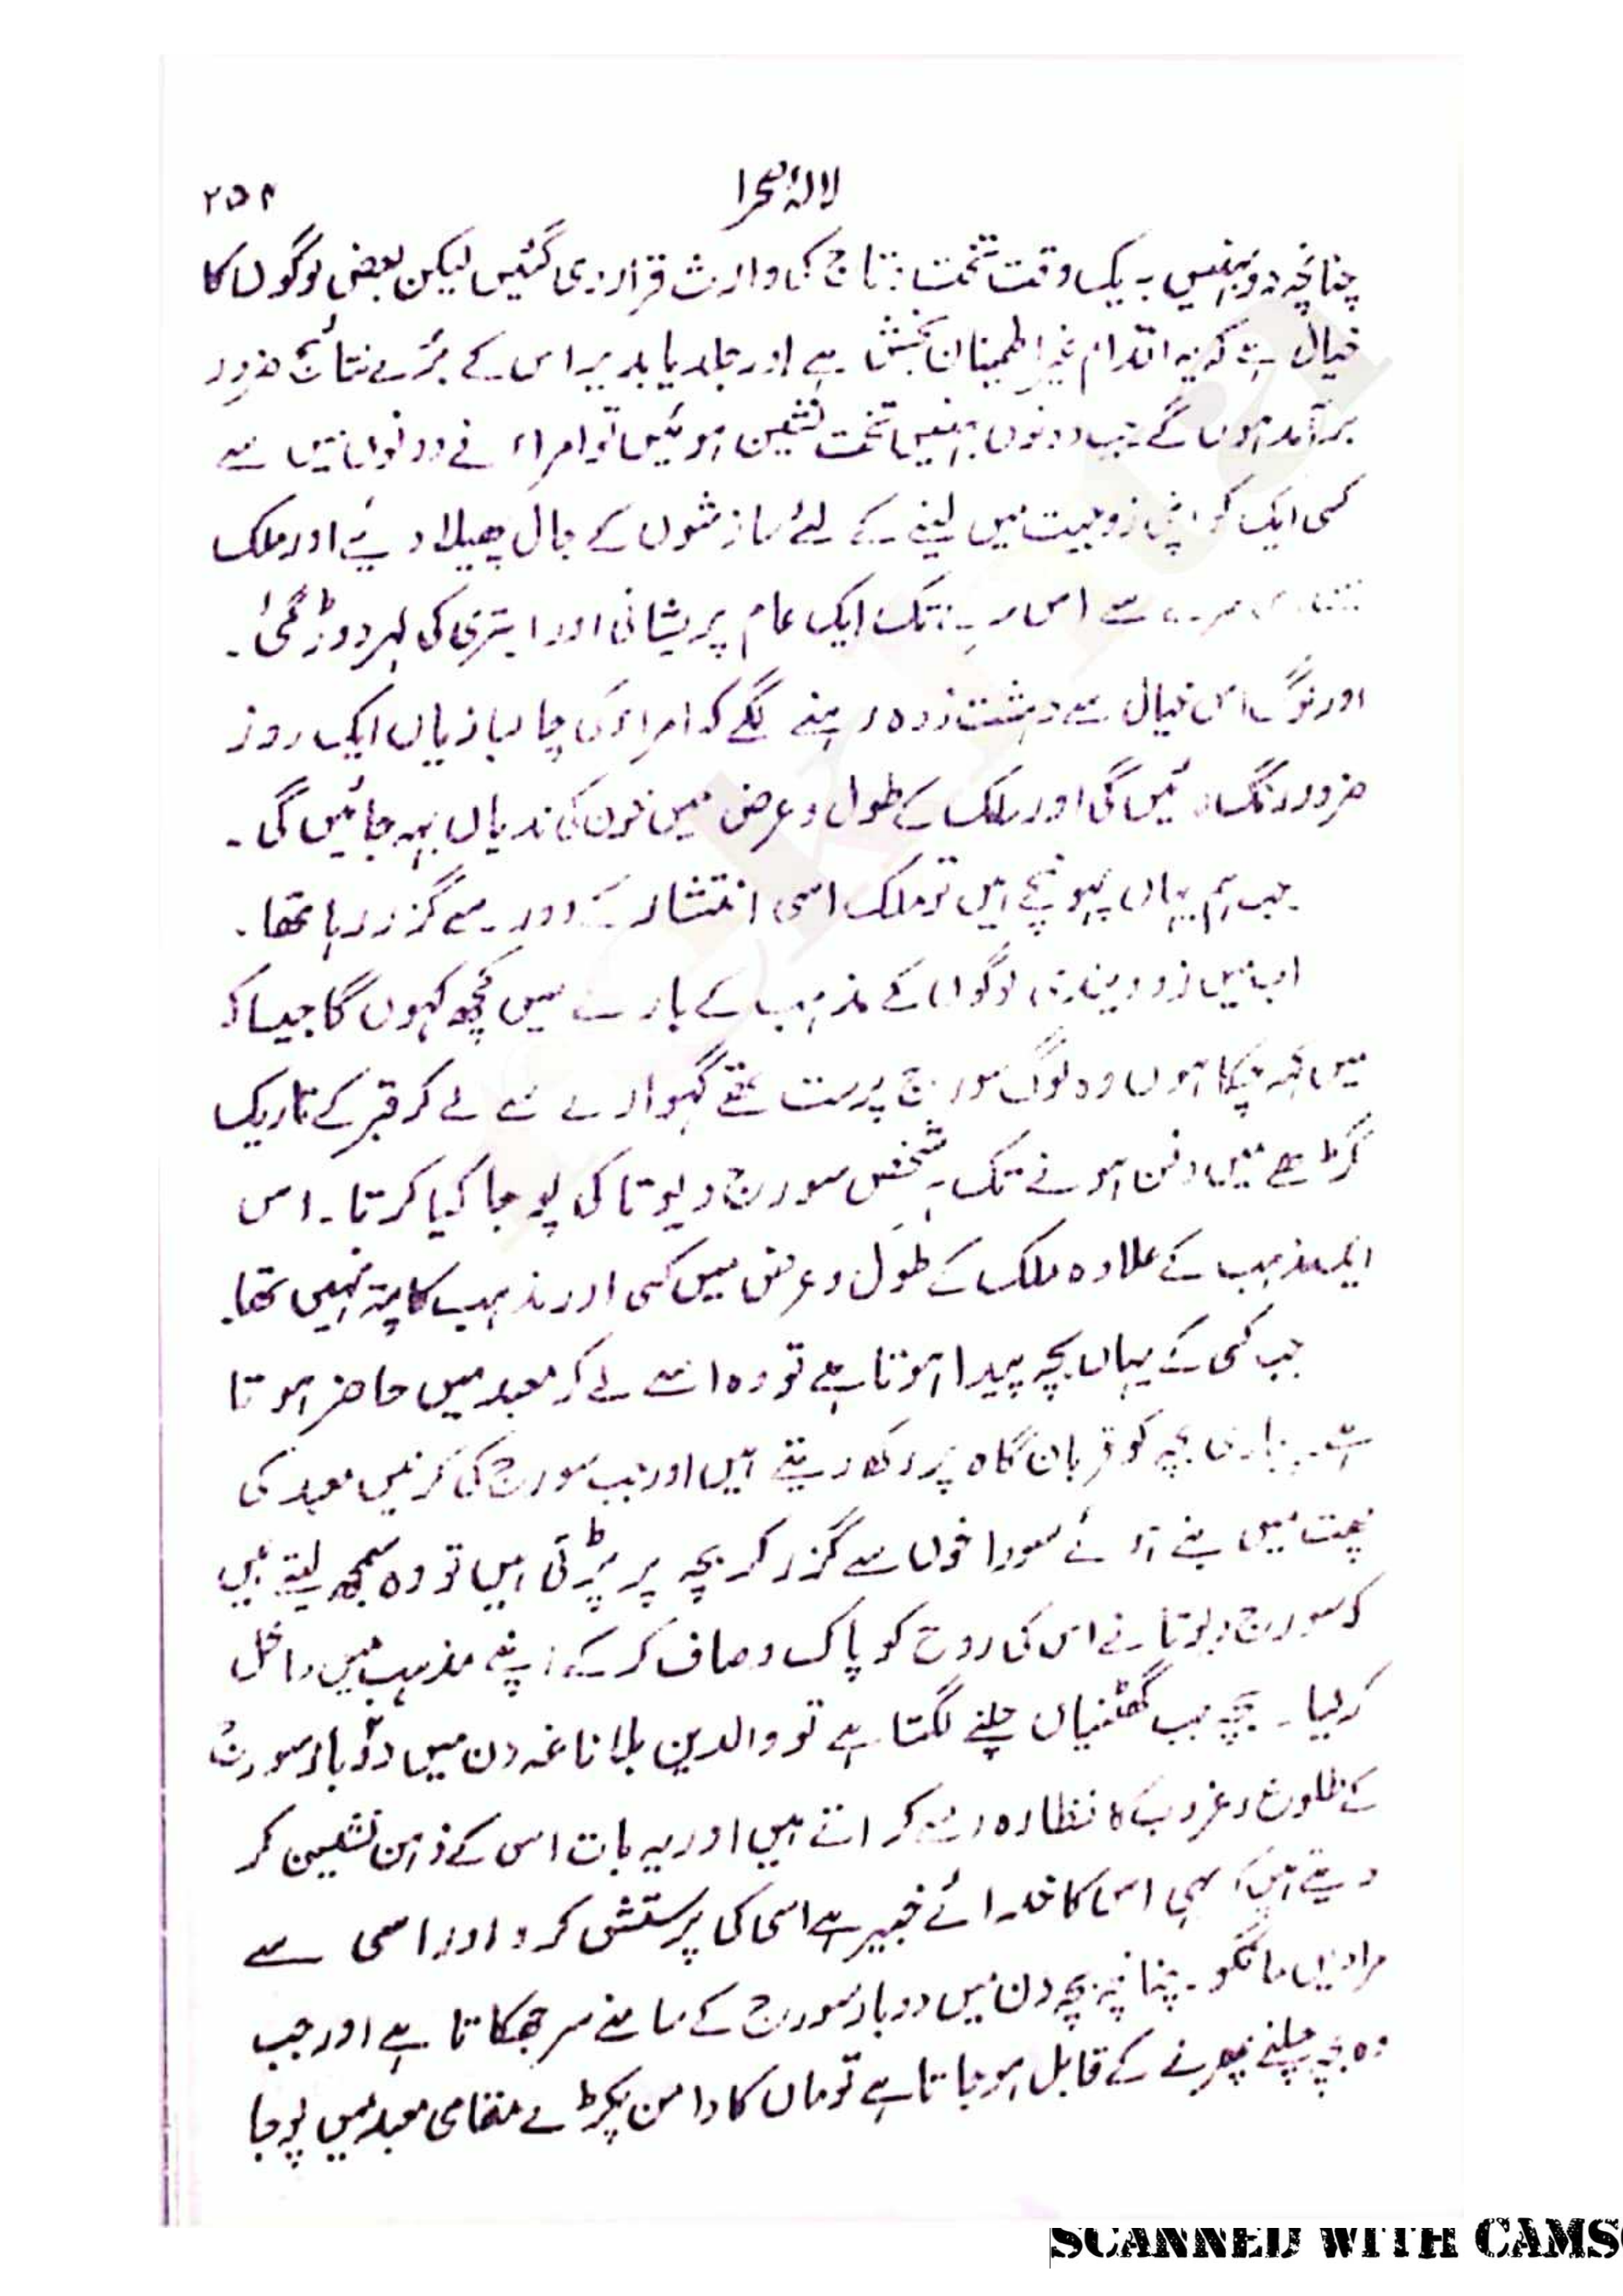 لالۂ صحرا
۲۵۹
چنانچہ دو بہنیں بہ یک وقت تخت و تاج کی وارث قرار دی گئیں لیکن بعض لوگوں کا
خیال ہے کہ یہ اقدام غیر اطمینان بخش ہے اور جلد یا بدیر اس کے بُرے نتائج ضرور
برآمد ہوں گے جب دونوں بہنیں تخت نشین ہوئیں تو امراء نے دونوں میں سے
کسی ایک کو اپنی زوجیت میں لینے کے لئے سازشوں کے جال پھیلا دیئے اور ملک
سے اس سرے تک ایک عام پریشانی اور ابتری کی لہر دوڑ گئی۔
اور لوگ اس خیال سے دہشت زدہ رہنے لگے کہ امراء کی چالبازیاں ایک روز
ضرور رنگ لائیں گی اور ملک کے طول و عرض میں خون کی ندیاں بہہ جائیں گی۔
جب ہم یہاں پہونچے ہیں تو ملک اسی انتشار کے دور سے گزر رہا تھا۔
اب میں لوگوں کے مذہب کے بارے میں کچھ کہوں گا جیسا کہ
میں کہہ چکا ہوں وہ لوگ سورج پرست تھے گہوارے سے لے کر قبر کے تاریک
گڑھے میں دفن ہونے تک ہر شخص سورج دیوتا کی پوجا کیا کرتا۔ اس
ایک مذہب کے علاوہ ملک کے طول و عرض میں کسی اور مذہب کا پتہ نہیں تھا۔
جب کسی کے یہاں بچہ پیدا ہوتا ہے تو وہ اسے لے کر معبد میں حاضر ہوتا
ہے۔ پجاری بچہ کو قربان گاہ پر رکھ دیتے ہیں اور جب سورج کی کرنیں معبد کی
چھت میں بنے ہوئے سوراخوں سے گزر کر بچہ پر پڑتی ہیں تو وہ سمجھ لیتے ہیں
کہ سورج دیوتا نے اس کی روح کو پاک و صاف کر کے اپنے مذہب میں داخل
کر لیا۔ بچہ جب گھٹنیاں چلنے لگتا ہے تو والدین بلا ناغہ دن میں دو بار سورج
کے طلوع و غروب کا نظارہ اسے کراتے ہیں اور یہ بات اس کے ذہن نشین کر
دیتے ہیں کہ یہی اس کا خدائے خبیر ہے اسی کی پرستش کرو اور اسی سے
مرادیں مانگو۔ چنانچہ بچہ دن میں دو بار سورج کے سامنے سر جھکاتا ہے اور جب
وہ بچہ چلنے پھرنے کے قابل ہو جاتا ہے تو ماں کا دامن پکڑے مقامی معبد میں پوجا
SCANNED WITH CAMS